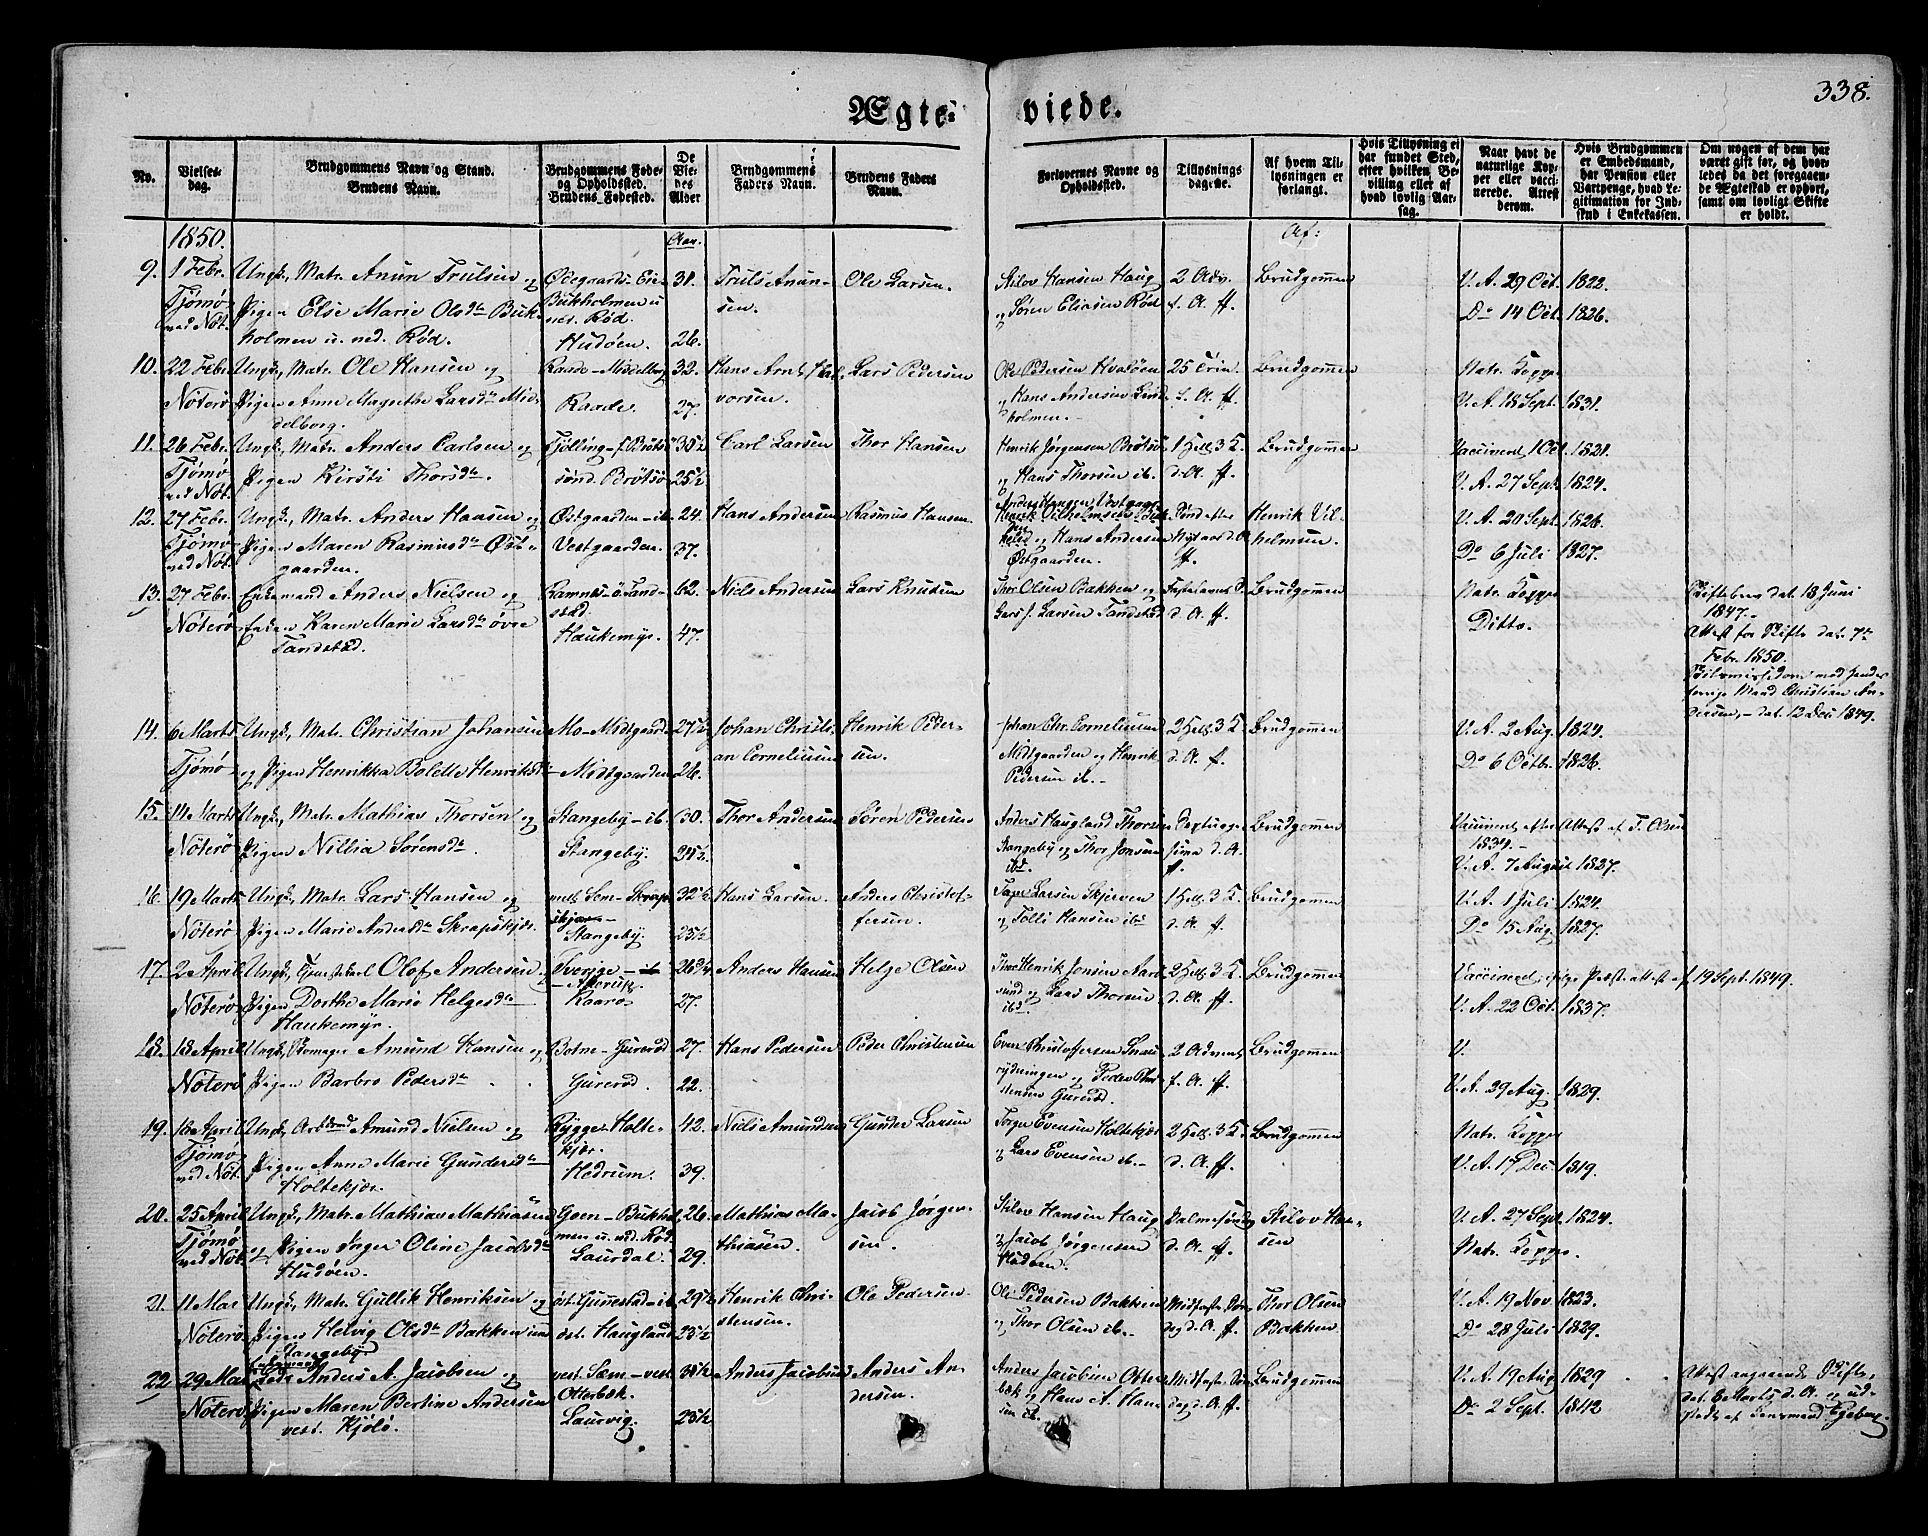 338.
Ægte-
viede.
No.
Vielses-
dag.
Brudgommens Navn og Stand.
Brudens Navn.
Brudgommens Føde-
og Opholdssted.
Brudens Fødested.
De
Vie-
des
Alder
Brudgommens
Faders Navn.
Brudens Faders
Navn.
Forlovernes Navne og
Opholdssted.
Tillysnings
dagene.
Af hvem Til-
lysningen er
forlangt.
Hvis Tillysning ei
har fundet Sted,
efter hvilken Be-
villing eller af
hvad lovlig Aar-
sag.
Naar havt de
naturlige Kop-
per eller vacci-
nerede. Attest
derom.
Hvis Brudgommen
er Embedsmand,
har Pension eller
Vartpenge, hvad Le-
gitimation for Ind-
skud i Enkekassen.
Om nogen af dem har
været gift før, og hvor-
ledes da det foregaaen-
de Ægteskab er ophørt,
samt om lovligt Skifte
er holdt.
1850.
Aar.
Af:
9. 1 Febr. Ungk, Matr. Anun Trulsen og
Tjømø Pigen Else Marie Olsdr Buk-
ved Nøt. holmen u. ned. Rød.
Ødegaards Eie
Bukholmen u
ned. Rød.
Hudøen.
31.
26.
Truls Anun-
sen.
Ole Larsen.
Stilov Hansen Haug
og Søren Eliasen Rød
2 Adv.
f. A. ff.
Brudgommen
V. A. 29 Oct. 1822.
Do 14 Oct. 1826.
10. 22 Febr. Ungk, Matr. Ole Hansen og
Nøterø Pigen Anne Magrethe Larsdr Mid-
delborg.
Raade - Middelborg
Raade.
32.
27.
Hans Arnt Hal-
vorsen.
Lars Pedersen
Ole Pedersen Hvaløen
og Hans Andersen Lind-
holmen.
25 Trin.
f. A. ff.
Brudgommen
Natr. Kopper
V. A. 18 Sept. 1831.
11. 26 Febr. Ungk, Matr. Anders Carlsen og
Tjømø Pigen Kirsti Thorsdr.
ved Nøt.
Tjølling - f. Brøtsø
sønd. Brøtsø
35½
25½
Carl Larsen
Thor Hansen
Henrik Jørgensen Brøtsø
og Hans Thorsen ib.
1 Hell. 3 K.
d. A. ff.
Brudgommen
Vaccineret 1 Oct. 1821.
V. A. 27 Sept. 1824.
12. 27 Febr. Ungk, Matr. Anders Hansen og
Tjømø Pigen Maren Rasmusdr Øst-
ved Nøt. gaarden.
Østgaarden - ib.
Vestgaarden.
24.
37.
Hans Andersen
Rasmus Hansen.
og Hans Andersen
Østgaarden.
Sønd. efter
Nytaar d. A
ff.
Henrik Vil-
helmsen.
V. A. 20 Sept. 1826.
Do 6 Juli 1827.
13. 27 Febr. Enkemand Anders Nielsen og
Nøterø Enken Karen Marie Larsdr øvre
Tandstad.
Ramnes - ö. Tand-
stad
Haukemyr.
62.
47.
Niels Andersen
Lars Knudsen
Thor Olsen Bakken og
Lars J. Larsen Tandstad
d. A. ff.
Brudgommen
Natr. Kopper
Ditto.
Skiftebrev dat. 18 Juni
1847.
Attest for Skifte dat. 7de
Febr. 1850.
Skilsmissedom med hendes
forrige Mand Christian An-
dersen, dat. 12 Dec 1849.
14. 6 Marts Ungk, Matr. Christian Johansen
Tjømø og Pigen Henrikka Bolette Henriksdr
Mo - Midtgaard
- Midtgaarden
27½
26.
Johan Christi-
an Corneliusen
Henrik Peder-
sen.
Johan Chr. Corneliusen
Midtgaarden og Henrik
Pedersen ib.
2 Hell. 3 K.
d. A. f.
Brudgommen
V. A. 2 Aug. 1824.
Do 6 Octb. 1826.
15. 14 Marts Ungk, Matr. Mathias Thorsen og
Nøterø Pigen Nillia Sørensdr.
Stangeby - ib.
Stangeby.
30.
25½
Thor Andersen
Søren Pedersen
Anders Haugland Thorsen
Stangeby og Thor Jonsen
ibd.
Septuage-
sima d. A.
ff.
Brudgommen
Vaccineret efter Attest af T. Olsen
1839.
V. A. 7 August 1827.
16. 19 Marts Ungk, Matr. Lars Hansen og
Nøterø Pigen Marie Andersdr Skrapskjær.
vestl. Sem - Skrap-
skjær
Stangeby.
32½
23½
Hans Larsen.
Anders Christof-
fersen.
Larsen Skjerven
og Tolli Hansen ibd
1 Hell. 3 K.
d. A. ff
Brudgommen
V. A. 1 Juli 1824.
Do 15 Aug. 1827.
17. 2 April Ungk, Tjenestekarl Olof Andersen og
Nøterø Pigen Dorthe Marie Helgesdr
Haukemyr.
Sverige - ib
Kaarø
26¾
27.
Anders Hansen
Helge Olsen
Thor Henrik Jonsen Aarø-
sund og Lars Thorsen
ibd.
2 Hell. 3 K.
d. A. ff.
Brudgommen
Vaccineret ifølge Præsteattest af 19 Sept. 1849.
V. A. 22 Oct. 1837.
18. 18 April Ungk, Skomager Amund Hansen og
Nøterø Pigen Barbro Pedersdr
Botne - Gurerød
Gurerød.
27.
22.
Hans Pedersen
Peder Christensen
Even Christoffersen Snau-
rydningen og Peder Chri-
stensen Gurerød.
2 Advent
f. A. ff.
Brudgommen
V.
V. A. 29 Aug. 1829.
19. 18 April Ungk, Arbmand Amund Nielsen og
Tjømø Pigen Anne Marie Gundersdr
ved Nøt. Holtekjær.
Rygge - Holte-
kjær.
Hedrum.
42.
39.
Niels Amundsen
Gunder Larsen
Jørgen Evensen Holtekjær
og Lars Evensen ib.
2 Hell. 3 K.
d. A. ff.
Brudgommen
Natr. Kopper
V. A. 17 Dec. 1819.
20. 25 April Ungk, Matr. Mathias Mathiasen
Tjømø og Pigen Inger Oline Jacobsdr
ved Nøt. Hudøen.
Goen - Bukhol-
men u. ned. Rød.
Laurdal.
26.
29.
Mathias Ma-
thiasen.
Jacob Jørgen-
sen.
Stilov Hansen Haug
og Jacob Jørgensen
Hudøen.
Palmesønd
d. A. ff.
Stilov Han-
sen
V. A. 27 Sept. 1824.
Natr. Kopper.
21. 11 Mai Ungk, Matr. Gullik Henriksen og
Nøterø. Pigen Helvig Olsdr Bakken und.
Stangeby
øst. Gunnestad - ib
øst. Haugland
29½
23½
Henrik Chri-
stensen.
Ole Pedersen.
Ole Pedersen Bakken
og Thor Olsen ib.
Midfaste Søn-
dag d. A. ff
Thor Olsen
Bakken
V. A. 19 Nov. 1823.
Do 28 Juli 1829.
22. 29 Mai Anders A. Jacobsen og
Nøterø Pigen Maren Bertine Andersen
vest. Kjølø.
vest. Sam - vest
Otterbæk.
Laurvig.
38½
23½
Anders Jacobsen
Anders An-
dersen.
Anders Jacobsen Otter-
bæk og Hans A. Han-
sen ib.
Midfaste Søn-
dag d. A. ff.
Brudgommen
V. A. 19 Aug. 1829
Do 2 Sept. 1842
Attest angaaende Skifte,
dat. 6 Marts d. A. og ud-
stedt af Lensmand Egeberg.